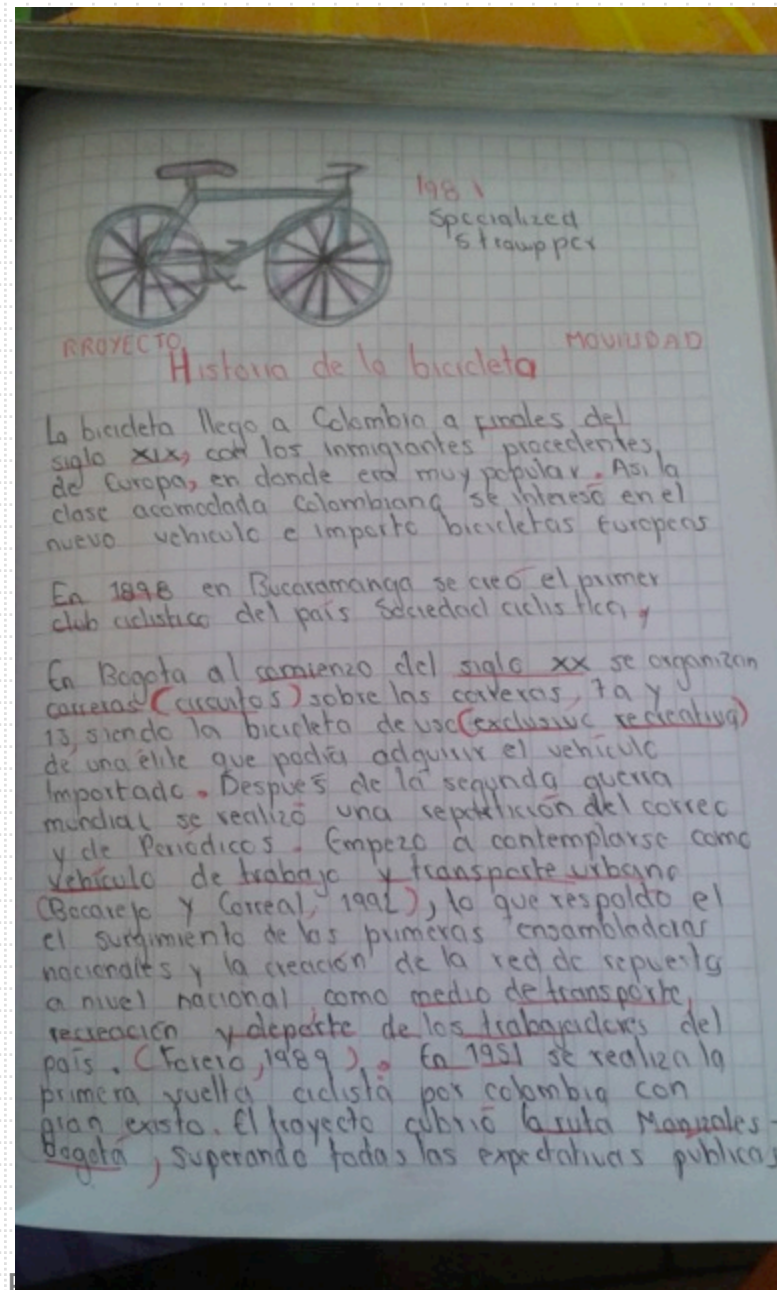 1981
Specialized
Strawpper
PROYECTO
MOVILIDAD
Historia de la bicicleta
La bicicleta llego a Colombia a finales del
siglo XIX, con los inmigrantes procedentes,
de Europa, en donde era muy popular. Asi la
clase acomodada Colombiana se intereso en el
nuevo vehiculo e importo bicicletas Europeas
En 1898 en Bucaramanga se creó el primer
club ciclistico del país Sociedad ciclistica,
En Bogota al comienzo del siglo XX se organizan
carreras (circuitos) sobre las carreras, 7a y
13, siendo la bicicleta de uso (exclusivo recreativa)
de una élite que podía adquirir el vehículo
Importado. Despues de la segunda guerra
mundial se realizó una repetición del correo
y de Periodicos. Empezo a contemplarse como
vehículo de trabajo y transporte urbano
(Bocarejo y Correal, 1992), lo que respaldo el
el surgimiento de las primeras ensambladoras
nacionales y la creación de la red de repuesta
a nivel nacional como medio de transporte,
recreación y deporte de los trabajadores del
país. (Forero, 1989). En 1951 se realiza la
primera vuelta ciclista por colombia con
gran existo. El trayecto cubrió la ruta Manizales -
Bogotá, superando todas las expectativas publicas